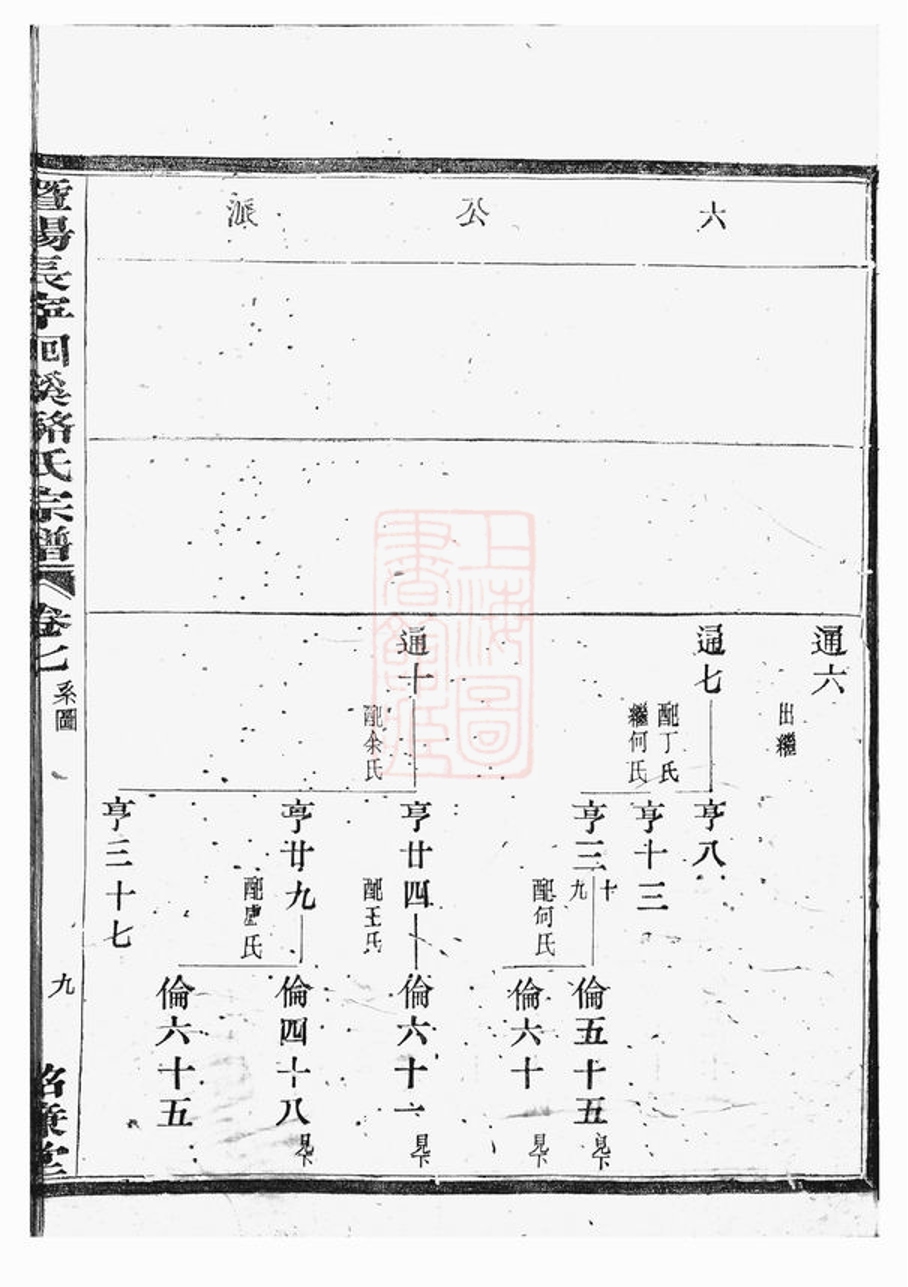 六公派
通六
出繼
通七
配丁氏
繼何氏
亨八
亨十三
亨三十九
配何氏
倫五十五
見下
倫六十
見下
通十
配余氏
亨廿四
配王氏
倫六十一
見下
亨廿九
配盧氏
倫四十八
見下
倫六十五
亨三十七
暨陽長寧回溪駱氏宗譜
卷七
系圖
九
上海圖書館藏